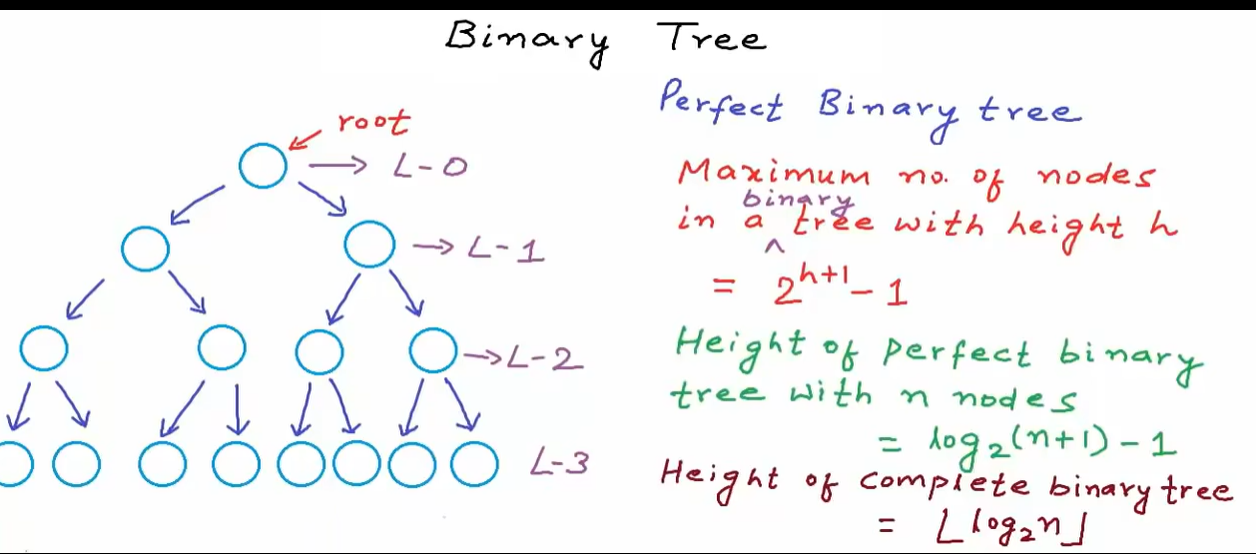 Binary Tree
root
L-0
L-1
L-2
L-3
Perfect Binary tree
Maximum no. of nodes
binary
in a ^ tree with height h
= 2^{h+1} - 1
Height of perfect binary
tree with n nodes
= log₂(n+1) - 1
Height of complete binary tree
= ⌊log₂n⌋